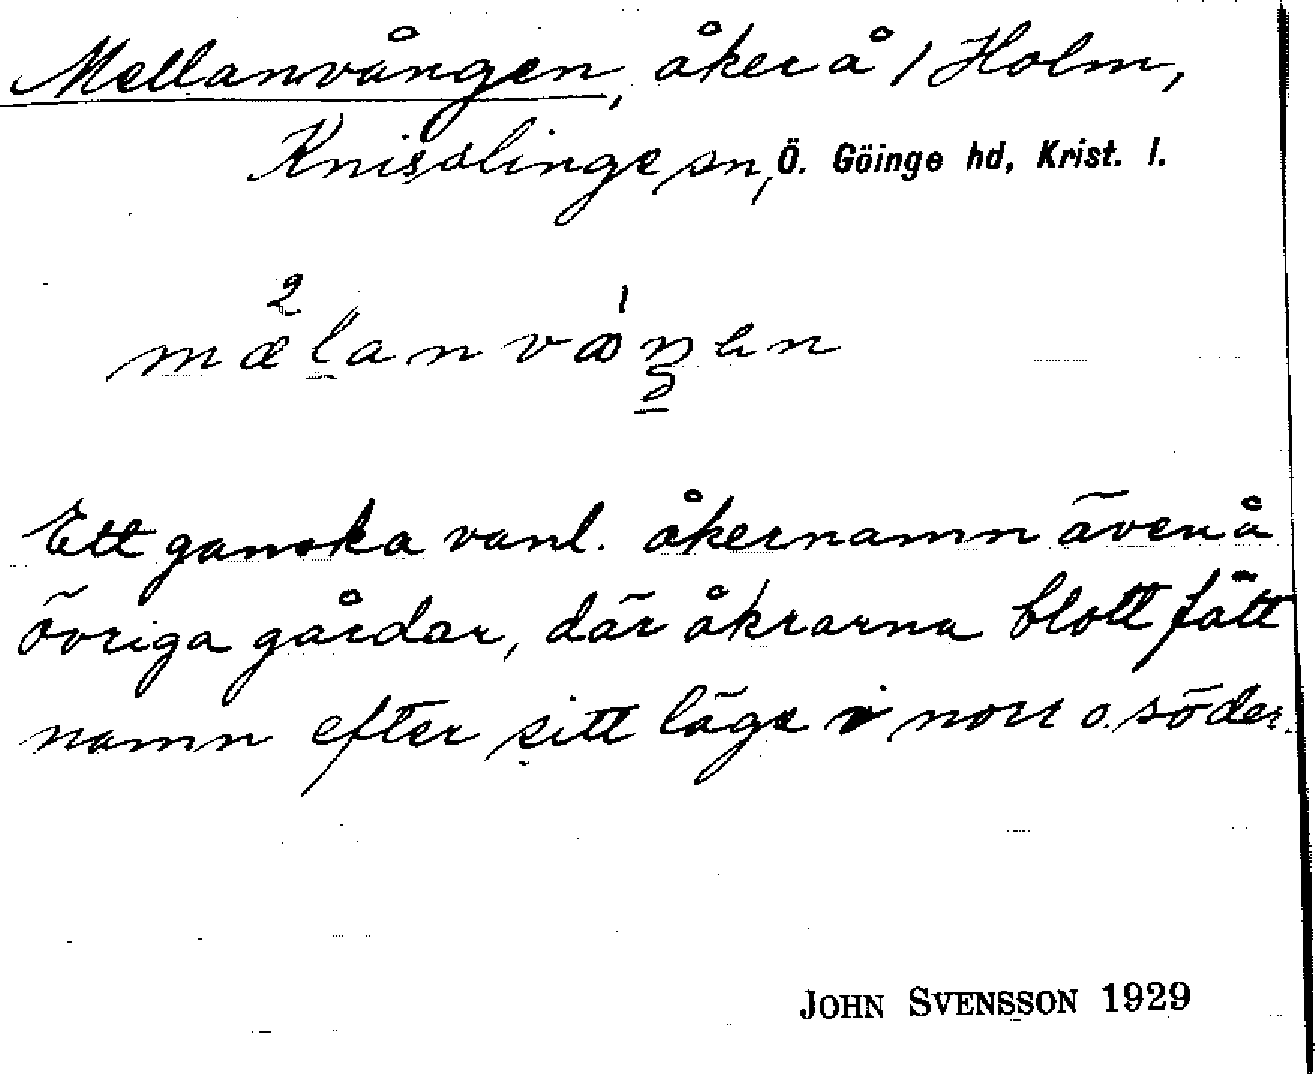 Mellanvången, åker å 1 Holm,
Knislinge sn, Ö. Göinge hd, Krist. l.
Ett ganska vanl. åkernamn även å
övriga gårdar, där åkrarna blott fått
namn efter sitt läge i norr o. söder.
JOHN SVENSSON 1929